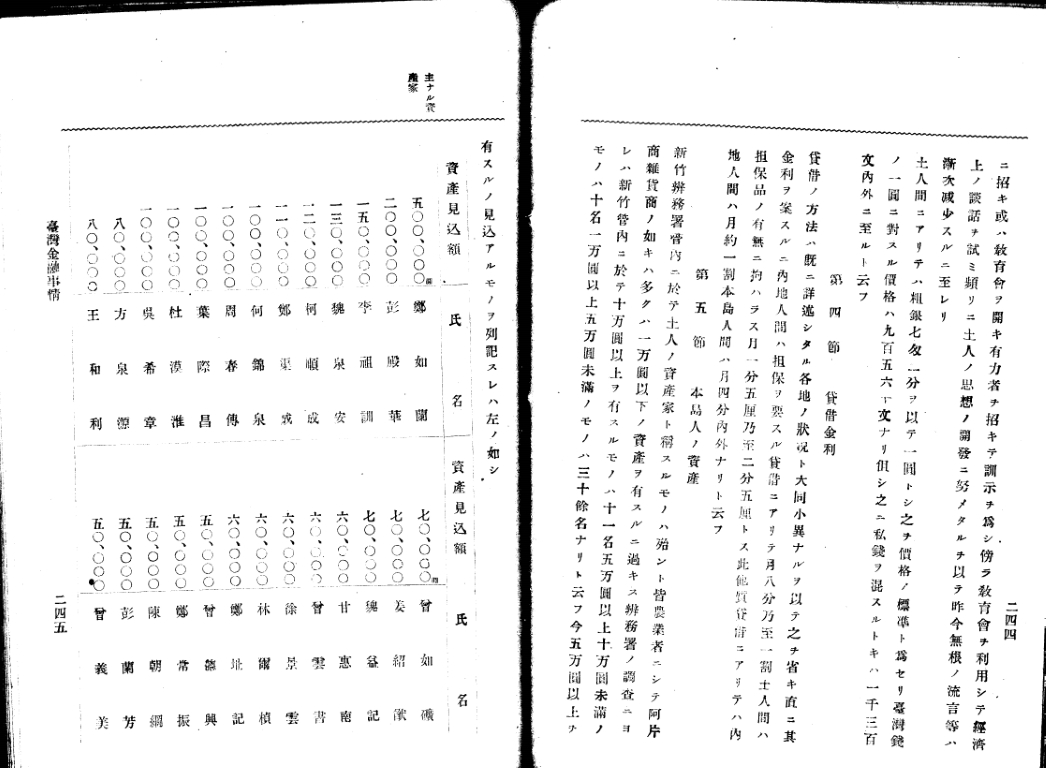 二四四
ニ招キ或ハ敎育會ヲ開キ有力者ヲ招キテ訓示ヲ爲シ傍ラ敎育會ヲ利用シテ經濟
上ノ談話ヲ試ミ頻リニ土人ノ思想ノ開發ニ努メタルヲ以テ昨今無根ノ流言等ハ
漸次減少スルニ至レリ
土人間ニアリテハ粗銀七匁一分ヲ以テ一圓トシ之ヲ價格ノ標準ト爲セリ臺灣錢
ノ一圓ニ對スル價格ハ九百五六十文ナリ但シ之ニ私錢ヲ混スルトキハ一千三百
文內外ニ至ルト云フ
第四節 貸借金利
貸借ノ方法ハ既ニ詳述シタル各地ノ狀況ト大同小異ナルヲ以テ之ヲ省キ直ニ其
金利ヲ案スルニ內地人間ハ担保ヲ要スル貸借ニアリテ月八分乃至一割土人間ハ
担保品ノ有無ニ拘ハラス月一分五厘乃至二分五厘トス此他質貸借ニアリテハ內
地人間ハ月約一割本島人間ハ月四分內外ナリト云フ
第五節 本島人ノ資產
新竹辨務署管內ニ於テ土人ノ資產家ト稱スルモノハ殆ント皆農業者ニシテ阿片
商雜貨商ノ如キハ多クハ一万圓以下ノ資產ヲ有スルニ過キス辨務署ノ調查ニヨ
レハ新竹管內ニ於テ十万圓以上ヲ有スルモノハ十一名五万圓以上十万圓未滿ノ
モノハ十名一万圓以上五万圓未滿ノモノハ三十餘名ナリト云フ今五万圓以上ヲ
主ナル資
產家
有スルノ見込アルモノヲ列記スレハ左ノ如シ
資產見込額 氏名 資產見込額 氏名
五〇〇、〇〇〇圓 鄭如蘭 七〇、〇〇〇圓 曾如
二〇〇、〇〇〇 彭殿華 七〇、〇〇〇 姜紹
一五〇、〇〇〇 李祖訓 七〇、〇〇〇 魏益記
一三〇、〇〇〇 魏泉安 六〇、〇〇〇 甘惠南
一二〇、〇〇〇 柯順成 六〇、〇〇〇 曾雲書
一一〇、〇〇〇 鄭 六〇、〇〇〇 徐景雲
一〇〇、〇〇〇 何錦泉 六〇、〇〇〇 林爾楨
一〇〇、〇〇〇 周春傳 六〇、〇〇〇 鄭址記
一〇〇、〇〇〇 葉際昌 五〇、〇〇〇 曾 興
一〇〇、〇〇〇 杜漢淮 五〇、〇〇〇 鄭常振
一〇〇、〇〇〇 吳希章 五〇、〇〇〇 陳朝綱
八〇、〇〇〇 方泉源 五〇、〇〇〇 彭蘭芳
八〇、〇〇〇 王和利 五〇、〇〇〇 曾義美
臺灣金融事情
二四五